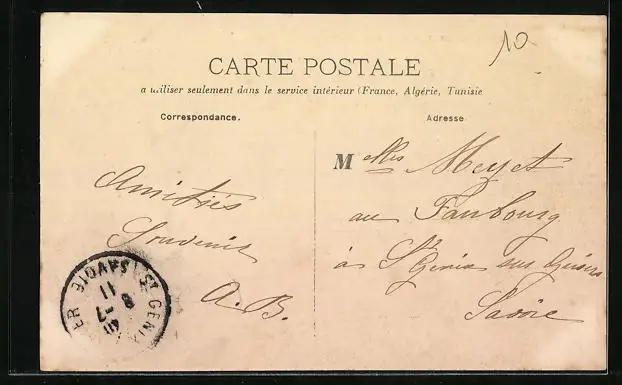 10
CARTE POSTALE
a utiliser seulement dans le service intérieur (France, Algérie, Tunisie
Correspondance.
Adresse
Melles Meyet
au Faubourg
à St Genix sur Guiers
Savoie
Amitiés
Souvenir
A. B.
ST GENIX
SAVOIE
11
8 -7